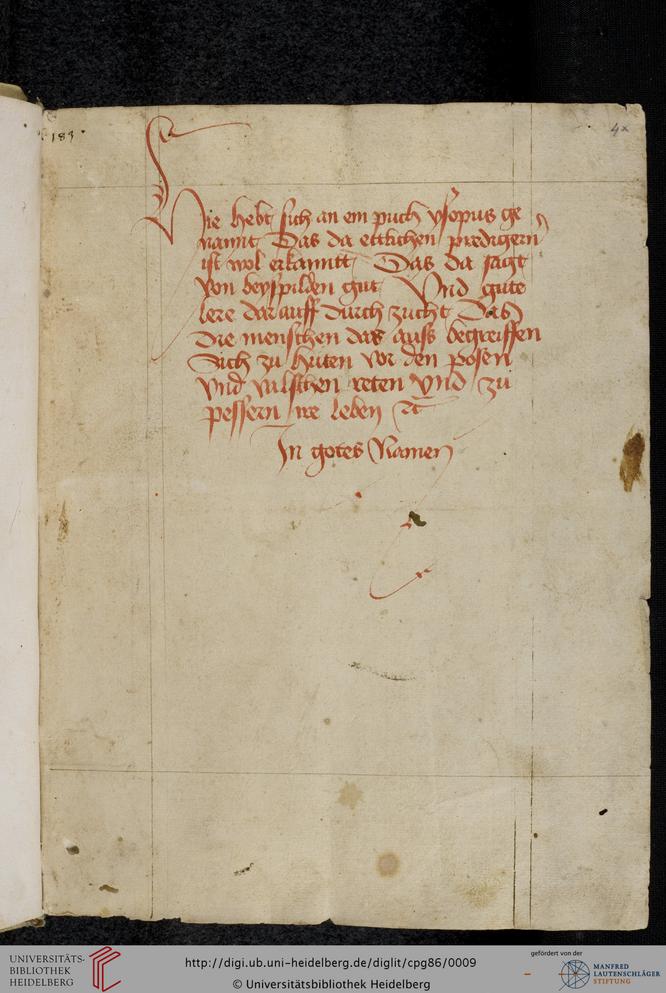 183
4x
Hie hebt sich an ein puch ysopus ge
nannt Das da ettlichen predigern
ist wol erkanntt Das da sagt
von beyspilden gut Vnd gute
lere dar auff durch zucht Das
Die menschen das auss begreiffen
Sich zu huten vor den posen
Vnd valschen reten Vnd zu
pessern ire leben
In gotes Namen
UNIVERSITÄTS-
BIBLIOTHEK
HEIDELBERG
http://digi.ub.uni-heidelberg.de/diglit/cpg86/0009
© Universitätsbibliothek Heidelberg
gefördert von der
MANFRED
LAUTENSCHLÄGER
STIFTUNG